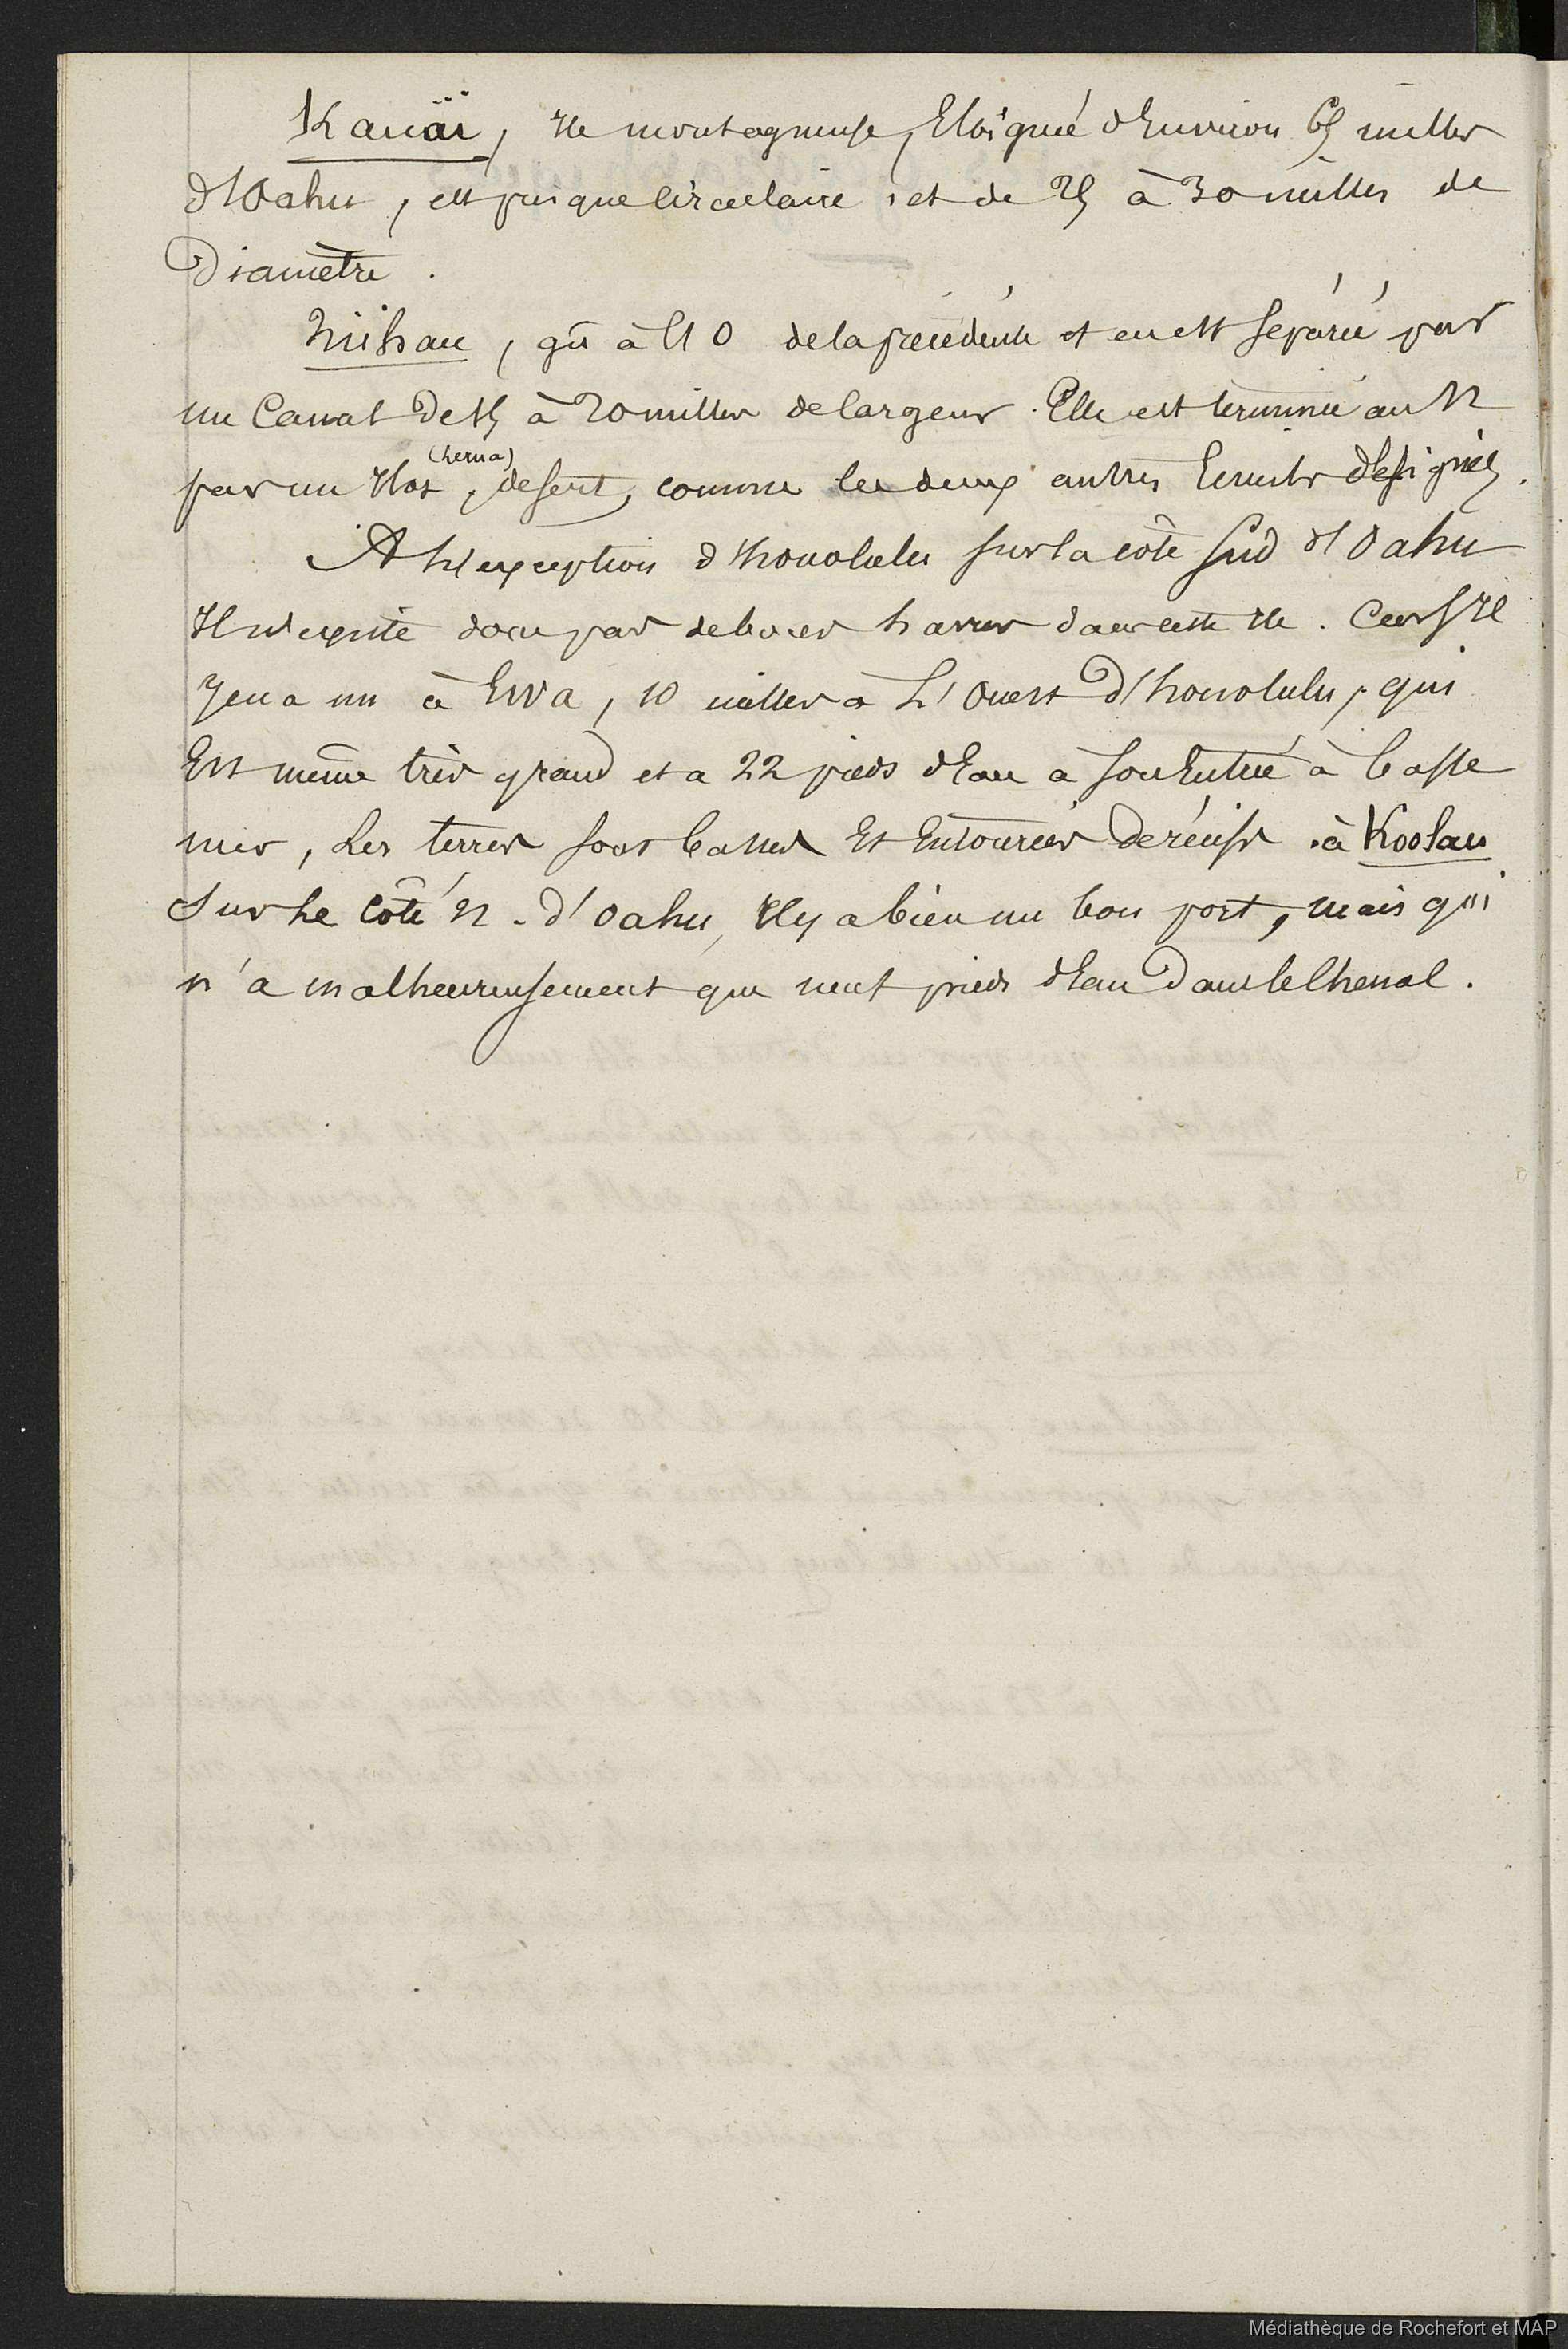 Kauaï, Ile montagneuse, Eloignée d'Environ 65 milles
d'Oahu, est presque circulaire, et de 25 à 30 milles de
Diamètre.
Niihau, git à l'O de la précédente et en est séparée par
un Canal De 15 à 20 milles de largeur. Elle est terminée au N
par un Ilot (Lerua), désert, comme les deux autres Désignés.
A l'exception d'Honolulu sur la côte Sud d'Oahu
Il n'existe donc pas de bons havres dans cette Ile. Car s'Il
y en a un à Ewa, 10 milles à L'Ouest D'honolulu, qui
Est même très grand et a 22 pieds d'Eau à son Entrée à basse
mer, Les terres sont basses Et Entourées De récifs. à Koolau
Sur le Côté N. d'Oahu, Il y a bien un bon port, mais qui
n'a malheureusement que neuf pieds d'Eau Dans le Chenal.
Médiathèque de Rochefort et MAP